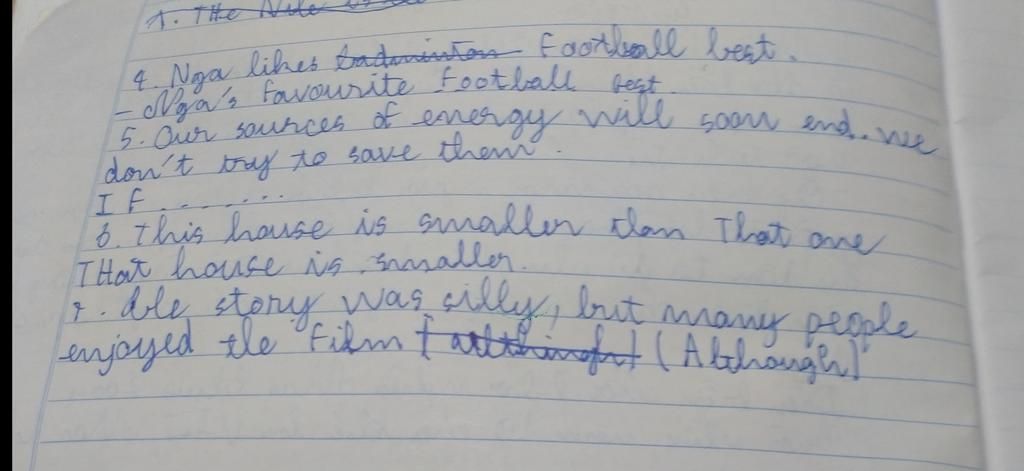 1. THe Nile
4. Nga likes badminton Football best.
- Nga's favourite Football best
5. Our sources of energy will soon end. we
don't try to save them.
IF ........
6. This house is smaller than That one
THat house is smaller.
7. The story was silly, but many people
enjoyed the Film (Although)